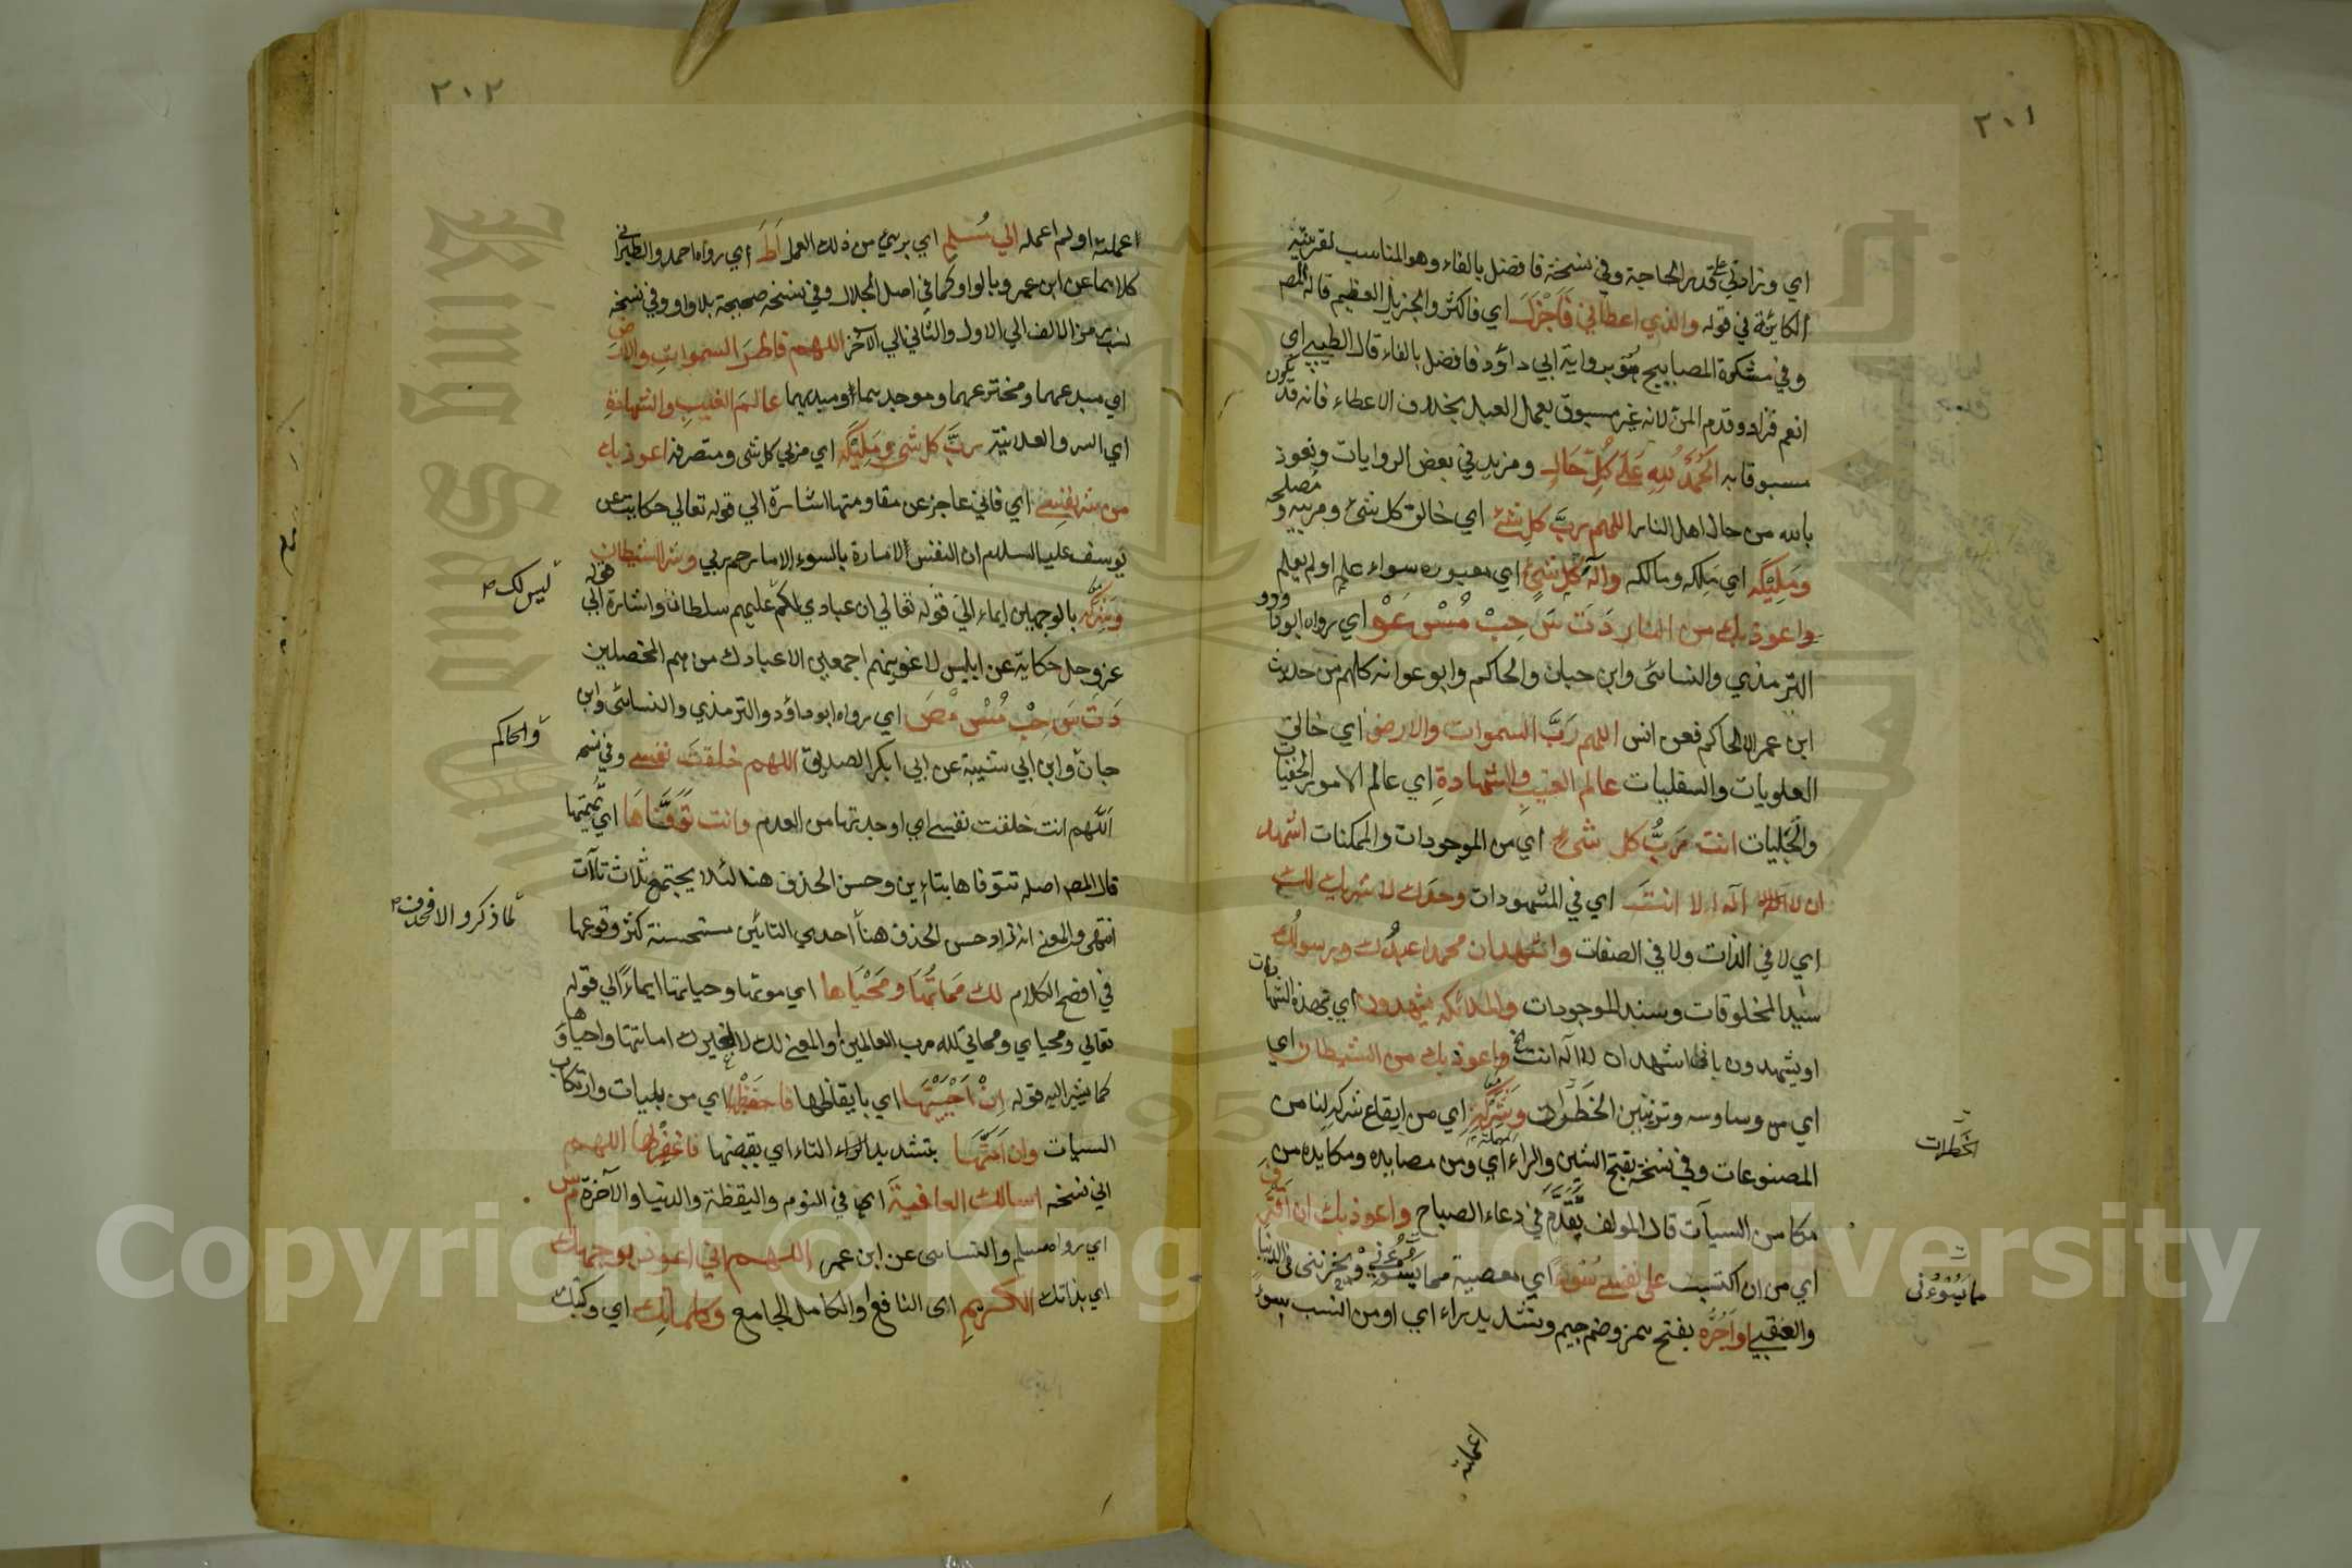 ٢٠١
اي وزادني على قدر الحاجة وفي نسخة فافضل بالفاء وهو المناسب لقرينته
الكائنة في قوله والذي اعطاني فَاَجْزَلَ اي فاكثر والجزيل العظيم قاله المص
وفي مشكوة المصابيح برواية ابي داؤد فافضل بالفاء قال الطيبي اي
انعم فزاد وقدم المن لانه غير مسبوق بعمل العبد بخلاف الاعطاء فانه قد يكون
مسبوقا به اَلْحَمْدُ لِلّهِ عَلَى كُلِّ حَالٍ ومزيد في بعض الروايات ونعوذ
بالله من حال اهل النار اللهم ربَّ كل شئ اي خالق كل شئ ومربيه ومصلحه
ومَلِيْكَه اي مَلِكه ومالكه والٓه كل شئ اي معبوده سواء علم او لم يعلم
واعوذ بك من النار دَ تَ سَ حِبْ مُسْ عَوْ اي رواه ابوداود و
الترمذي والنسائى وابن حبان والحاكم وابو عوانه كلهم من حديث
ابن عمر الا الحاكم فعن انس اللهم رَبَّ السموات والارض اي خالق
العلويات والسفليات عالم الغيبِ والشهادةِ اي عالم الامور الخفيات
والجَليات انت رَبُّ كل شئ اي من الموجودات والممكنات اشهد
ان لا الٓه الا انتَ اي في المشهودات وحدك لا شريك لك
اي لا في الذات ولا في الصفات واشهد ان محمدا عبدُك ورسولُك
سيد المخلوقات وسند الموجودات والملائكه يشهدون اي بهذه الشهادات
او يشهدون باني اشهد ان لا اله انت الخ واعوذ بك من الشيطان اي
اي من وساوسه وتزيين الخَطَرات وشَرَكِه اي من ايقاع شركه لنا من
المصنوعات وفي نسخة بفتح الشين والراء اي ومن مصايده ومكايده من
مكامن السيآت قال المولف تقدَّم في دعاء الصباح واعوذ بك ان اقترف
اي من ان اكتسب على نفسي سُوءًا اي معصية مما يَسُوْءُني ويحزننى في الدنيا
والعقبي او اَجُرَّه بفتح همز وضم جيم وتشديد راء اي او من انسب بسوء
الخَطَرات
ما يَسُوْءُنى
٢٠٢
اعملته او لم اعمله الي مُسلمٍ اي بريئ من ذلك العمل اَطَ اي رواه احمد والطبراني
كلاهما عن ابن عمر وبالواو كما في اصل الجلال وفي نسخه صحيحة بلا واو وفي نسخه
نسب رمز الالف الي الاول والثاني الي الآخر اللهم فاطرَ السمواتِ والارض
اي مبدعهما ومخترعهما وموجدهما ومبديهما عالمَ الغيبِ والشهادةِ
اي السر والعلانية ربَّ كل شئ ومَلِيْكَه اي مربي كل شى ومتصرفه اعوذ بك
من شر نفسي اي فاني عاجز عن مقاومتها اشارة الي قوله تعالي حكاية عن
يوسف عليه السلام ان النفس لامارة بالسوء الا ما رحم ربي وشر الشيطان
وشِرْكه بالوجهين ايماء الي قوله تعالي ان عبادي لكم عليهم سلطان واشارة الي قوله
عز وجل حكاية عن ابليس لاغوينهم اجمعين الا عبادك منهم المخلصين
دَ ت سَ حِبْ مُسْ مْصَ اي رواه ابو داؤد والترمذي والنسائى وابن
حبان وابن ابي شيبة عن ابي ابكر الصديق اللهم خلقتَ نفسي وفي نسخه
اَللّهم انت خلقت نفسي اي اوجدتها من العدم وانت تَوَفَّاها اي تُميتها
قال المص اصله تتوفاها بتاءين وحسن الحذف هنا لئلا يجتمع ثلاث تاآت
انتهى والمعني انه زاد حسن الحذف هنا احدي التائين مستحسنة كثر وقوعها
في افصح الكلام لك مَمَاتُها ومَحْيَاها اي موتها وحياتها ايماءً الي قوله
تعالي ومحياي ومماتي لله رب العالمين او المعني لك لا لغيرك اماتتها واحياؤها
كما يشير اليه قوله اِنْ اَحْيَيْتَهَا اي بايقاظها فاحفظْها اي من بليات وارتكاب
السيات وان اَمَتَّهَا بتشديد التاء اي بقبضها فاغفرلها اللهم
اني نسخه اسالك العافيةَ اي في النوم واليقظة والدنيا والآخرة مْ س
اي رواه مسلم والنساسى عن ابن عمر اللهم اني اعوذ بوجهك
اي بذاتك الكريمِ اى النافع او الكامل الجامع وكلماتِك اي وكتبك
ليس لك
والحاكم
لما ذكروا لا فحذف
Copyright © King Saud University
King Saud University